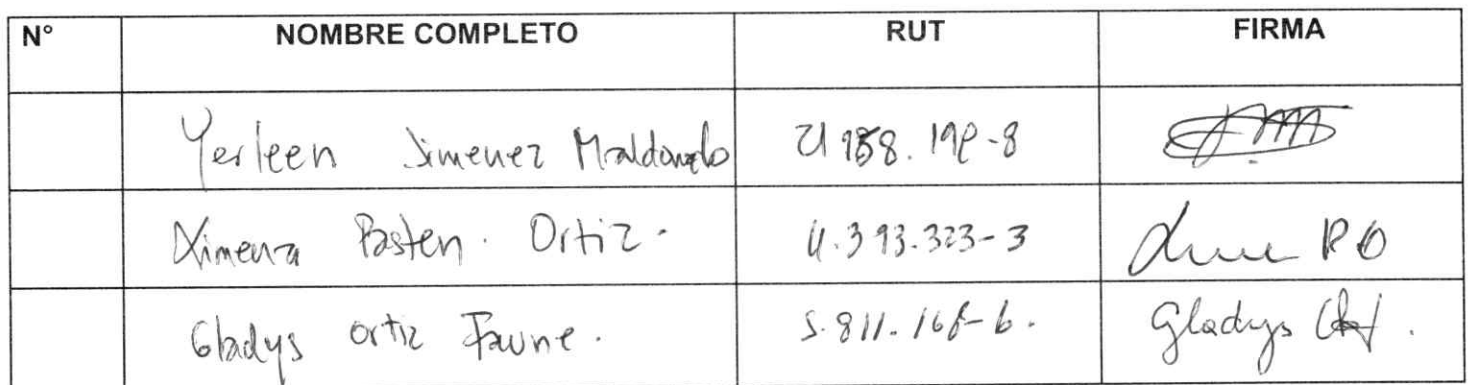 N° NOMBRE COMPLETO RUT FIRMA
Yerleen Jimenez Maldonado
Ximena Pasten. Ortiz. 11.393.323-3
Gladys Ortiz Faune. Gladys